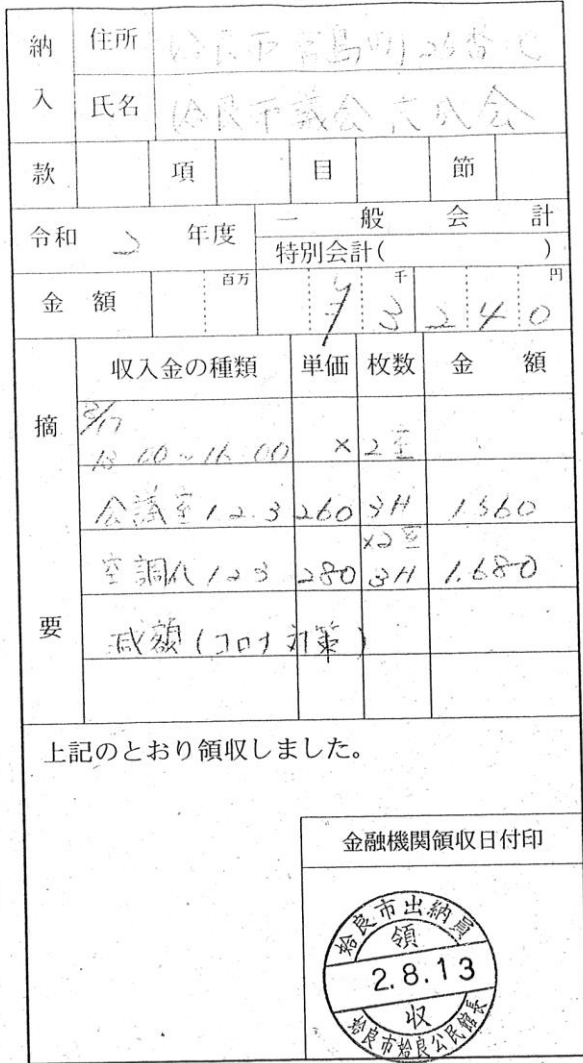 納入 住所 姶良市宮島町25番地
氏名 姶良市議会 六八会
款 項 目 節
令和 2 年度 一般会計
特別会計( )
金額 百万 千 円 ¥3240
摘要 収入金の種類 単価 枚数 金額
8/17
13:00~16:00 × 2室
会議室1 2.3 260 3H 1.560
×2室
空調代 1 2 3 280 3H 1.680
減額(コロナ対策)
上記のとおり領収しました。
金融機関領収日付印
姶良市出納員
領
2.8.13
収
姶良市姶良公民館長